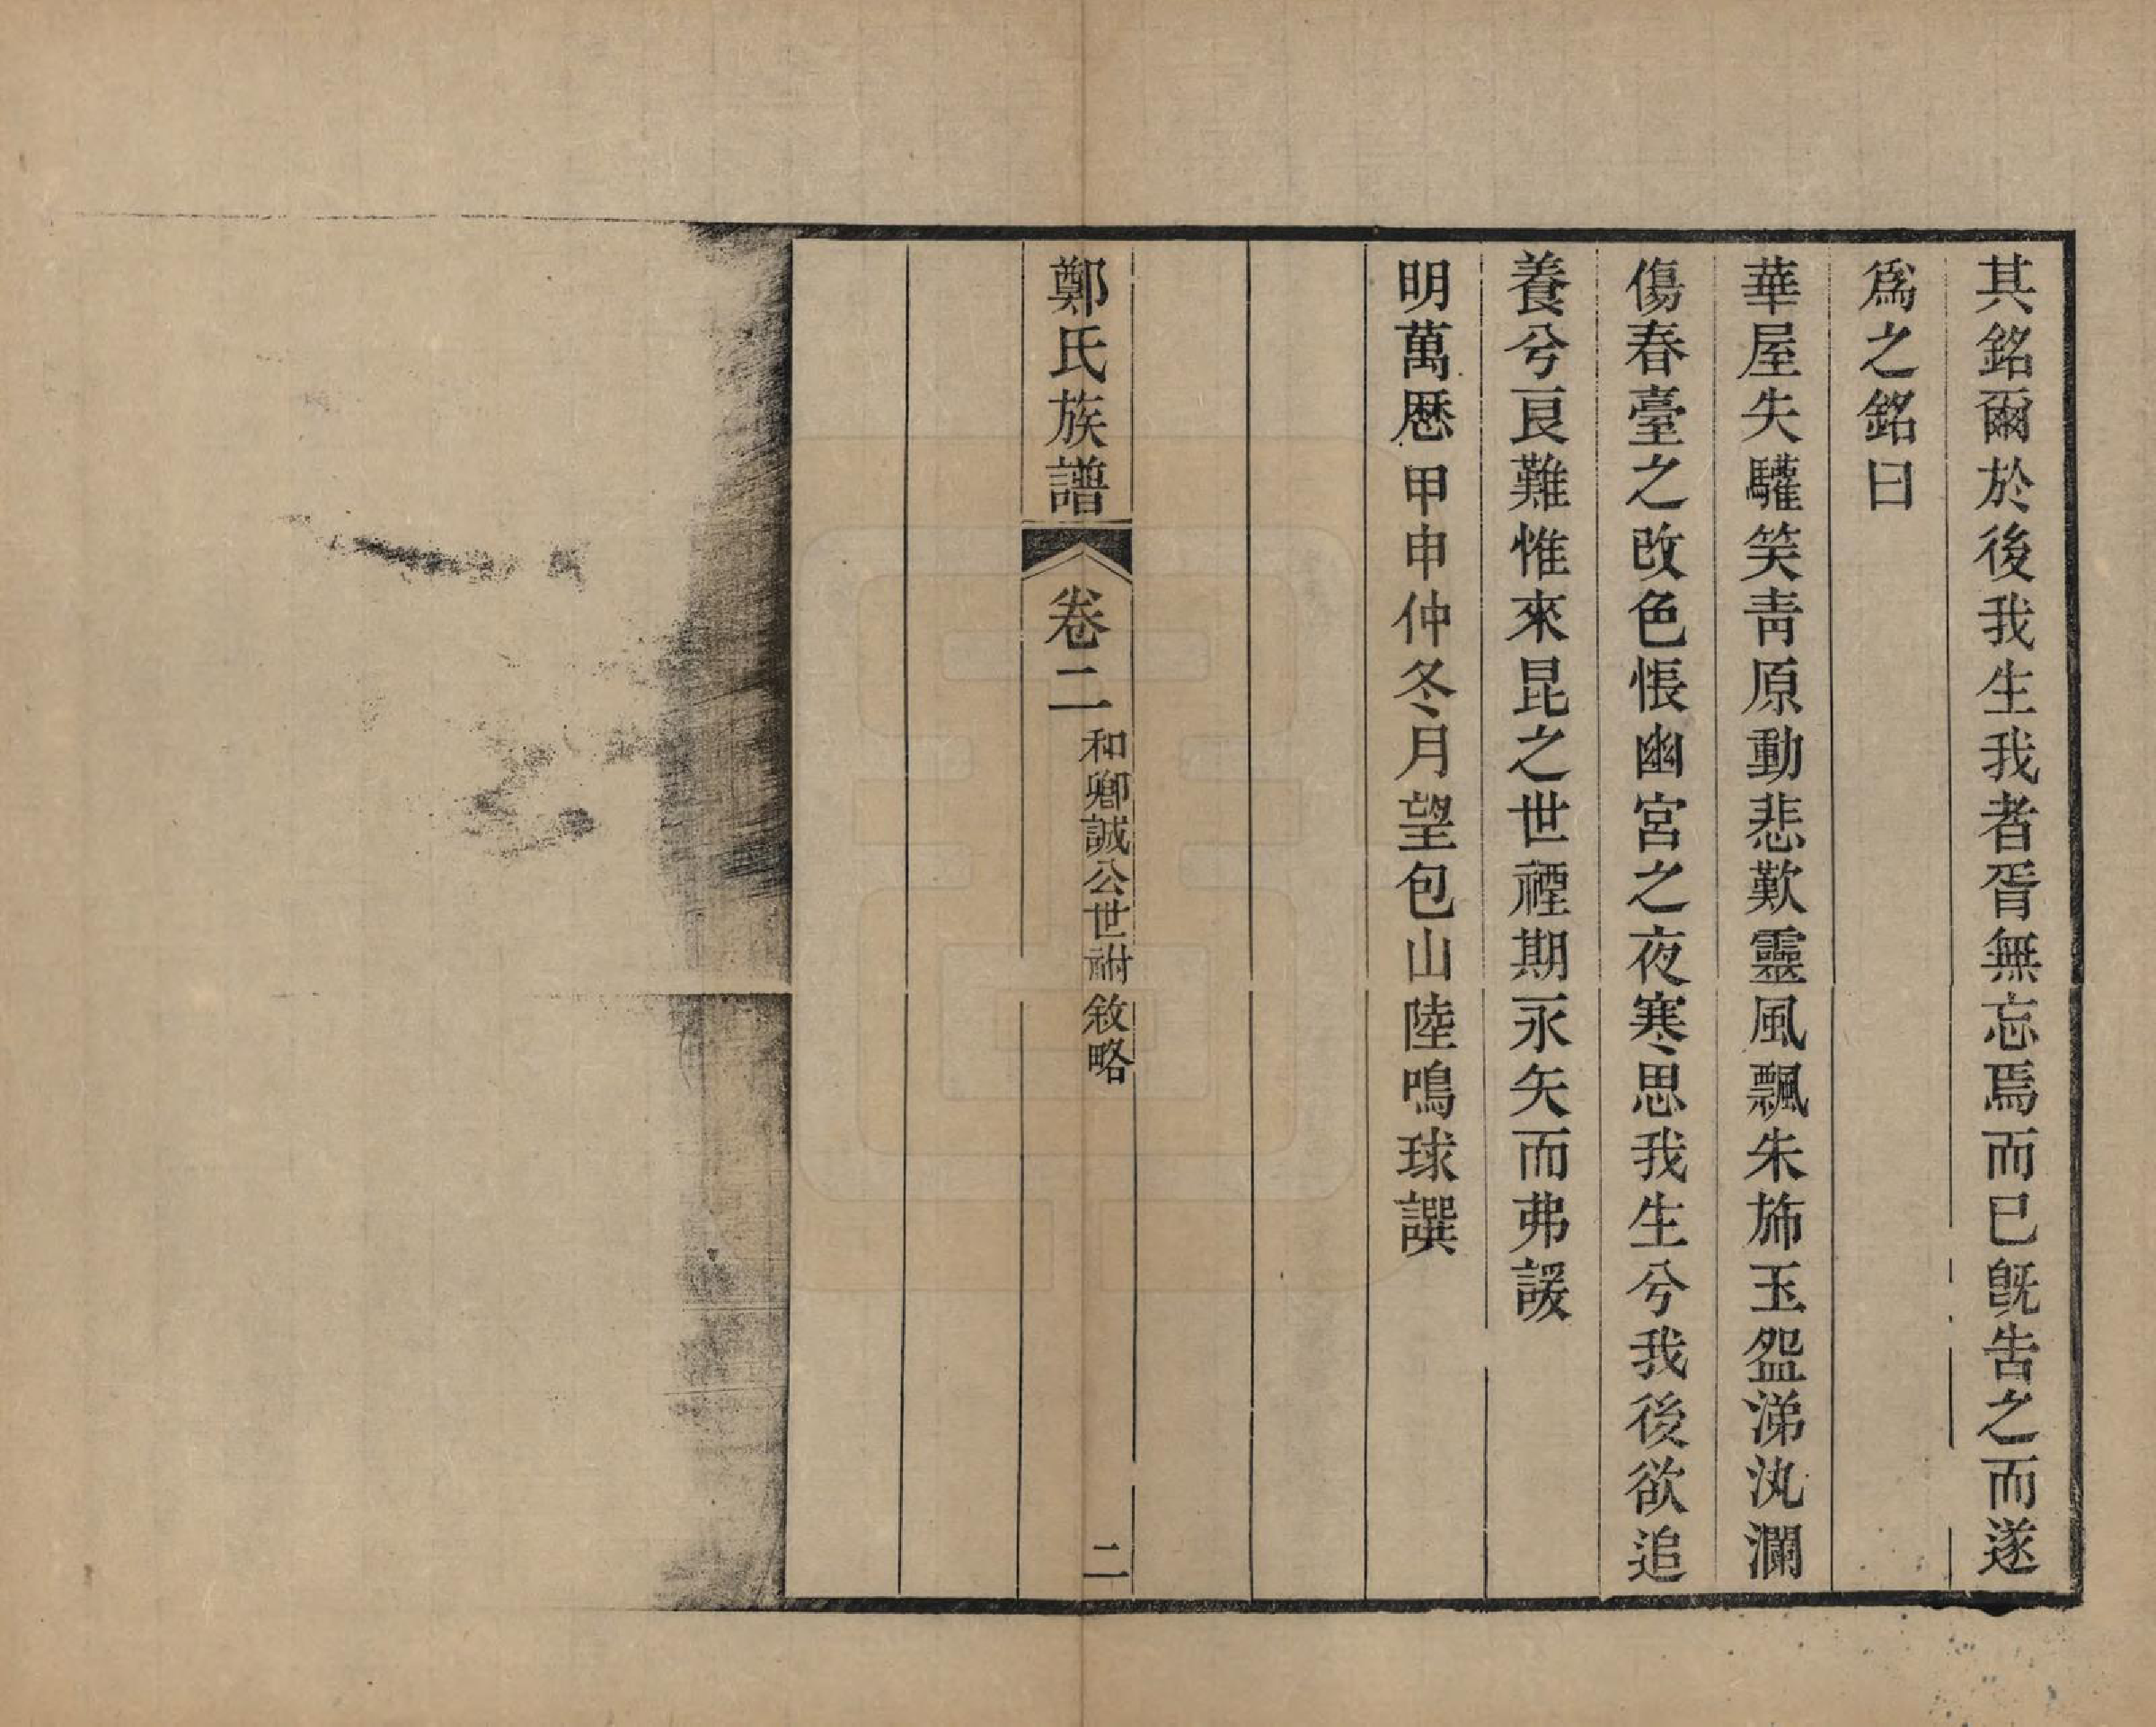 其銘爾於後我生我者胥無忘焉而已旣告之而遂
爲之銘曰
華屋失驩笑靑原動悲歎靈風飄朱斾玉盌涕汍瀾
傷春臺之改色悵幽宮之夜寒思我生兮我後欲追
養兮良難惟來昆之世禋期永矢而弗諼
明萬厯甲申仲冬月望包山陸鳴球譔
鄭氏族譜
卷二
和卿誠公世祔敘略
二